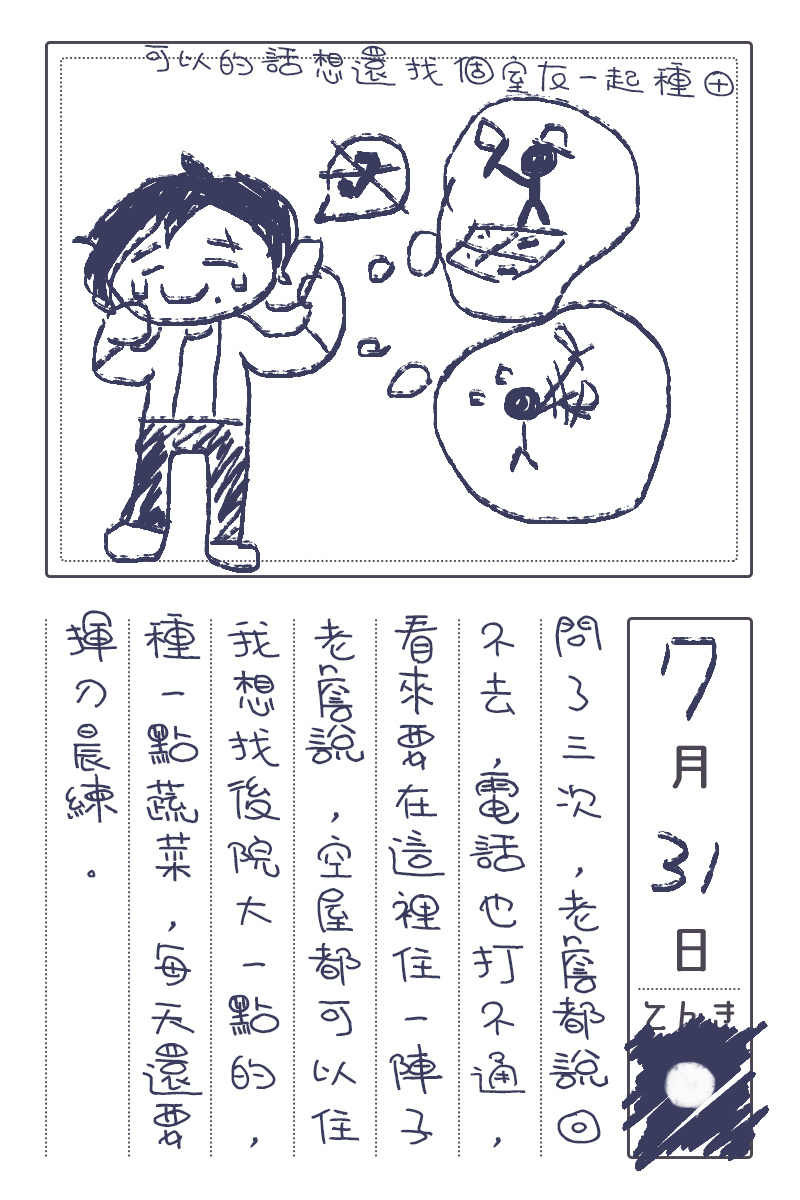 可以的話想還找個室友一起種田
7月31日
てんき
問了三次，老詹都說回
不去，電話也打不通，
看來要在這裡住一陣子
老詹說，空屋都可以住
我想找後院大一點的，
種一點蔬菜，每天還要
揮刀晨練。